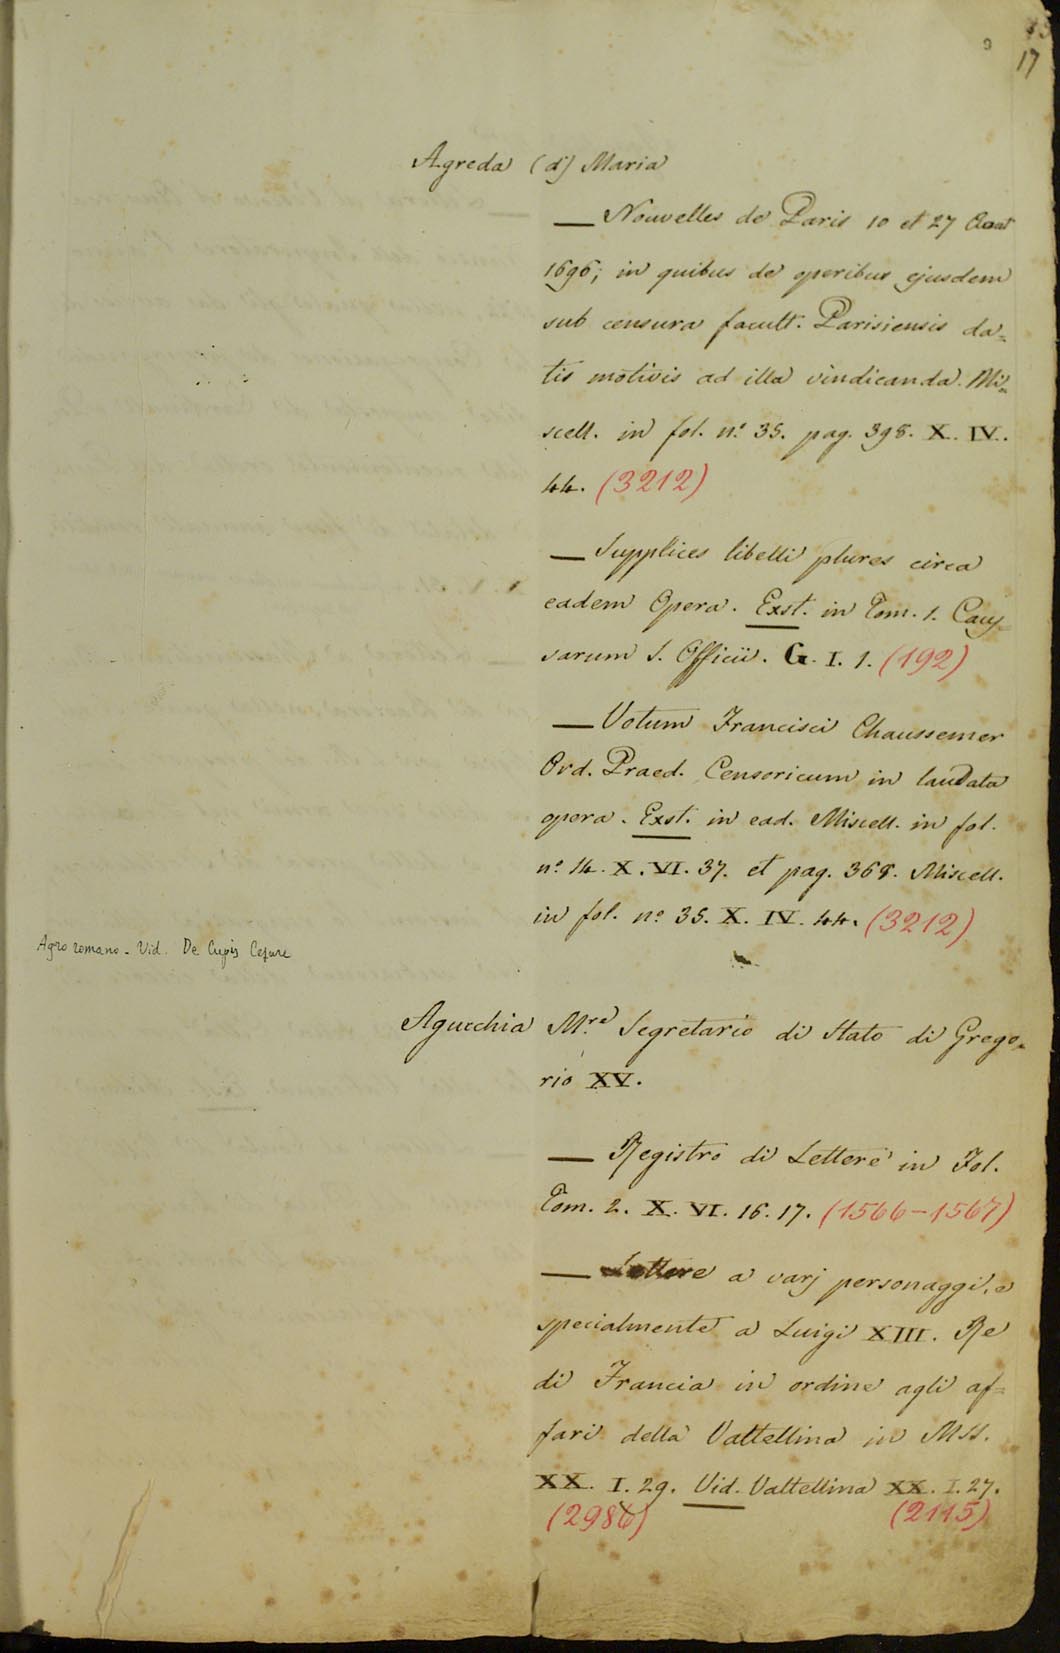 17
Agreda (d') Maria
— Nouvelles de Paris 10 et 27 Aoat
1696; in quibus de operibus ejusdem
sub censura facult. Parisiensis da=
tis motivis ad illa vindicanda. Mi=
scell. in fol. n.º 35. pag. 398. X. IV.
44. (3212)
— Supplices libelli plures circa
eadem Opera. Exst. in Tom. 1. Caus=
sarum S. Officii. G. I. 1. (192)
— Votum Francisci Chaussemer
Ord. Praed. Censoricum in laudata
opera. Exst. in ead. Miscell. in fol.
n.º 14. X. VI. 37. et pag. 368. Miscell.
in fol. n.º 35. X. IV. 44. (3212)
Agro romano - Vid. De Cupis Cesare
Agucchia M.re Segretario di Stato di Grego=
rio XV.
— Registro di Lettere in Fol.
Tom. 2. X. VI. 16. 17. (1566-1567)
— Lettere a varj personaggi, e
specialmente a Luigi XIII. Re
di Francia in ordine agli af=
fari della Valtellina in MSS.
XX. I. 29. Vid. Valtellina XX. I. 27.
(2115)